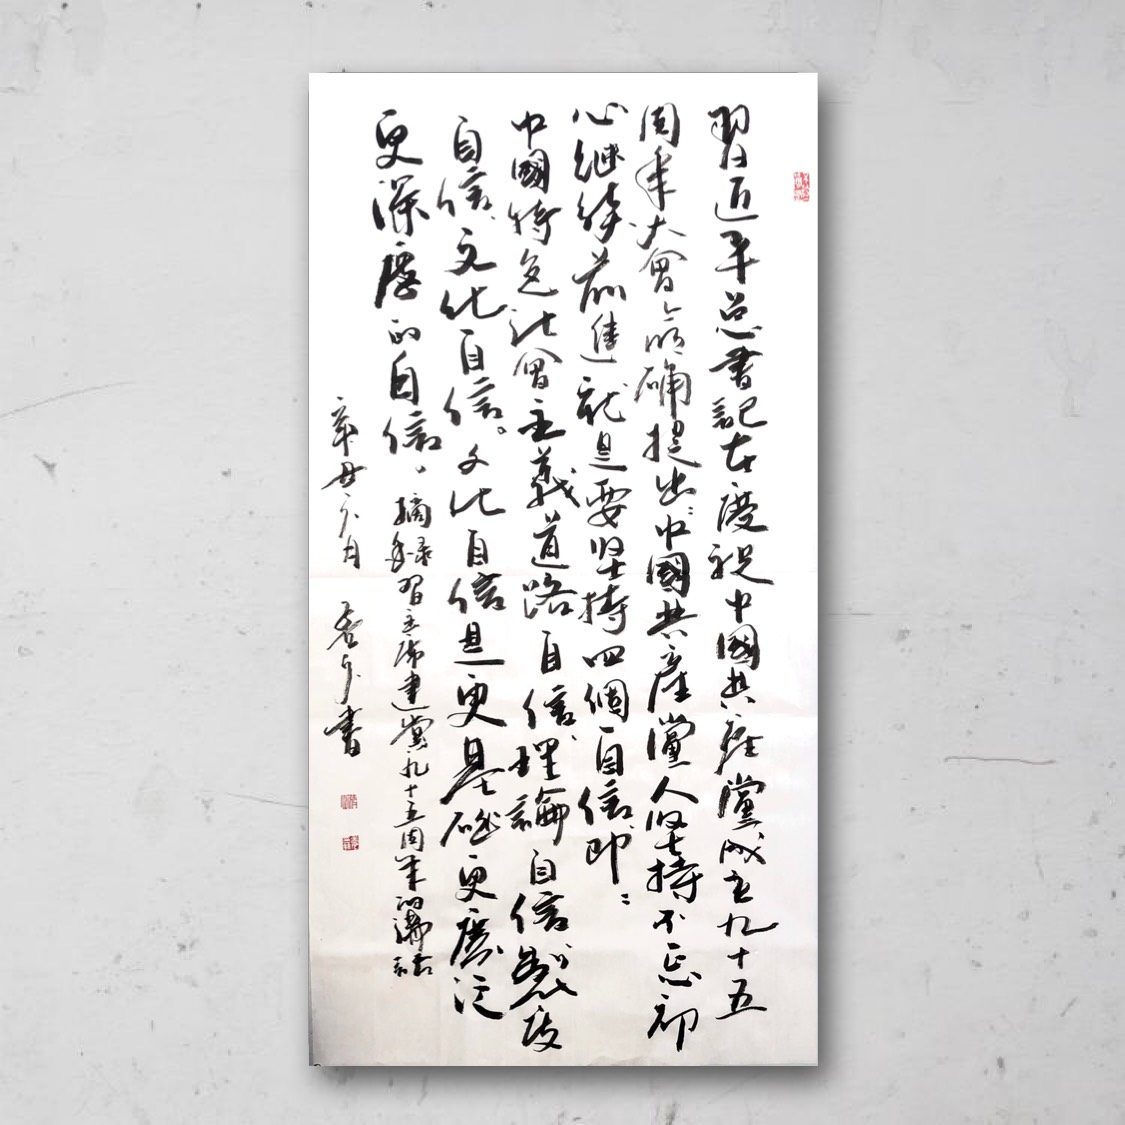 習近平总書記在慶祝中國共産黨成立九十五
周年大會上明確提出：中國共産黨人坚持不忘初
心继续前進就是要坚持四個自信即：
中國特色社會主義道路自信、理論自信、製度
自信、文化自信。文化自信是更基础更廣泛
更深厚的自信。
摘录習主席建黨九十五周年的講話
辛丑六月
書